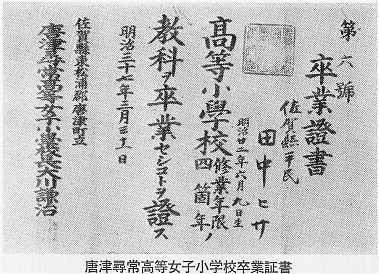 第六號
卒業證書
佐賀縣平民
田中ヒサ
明治廿一年六月九日生
高等小學校修業年限四箇年ノ
教科ヲ卒業セシコトヲ證ス
明治三十七年三月三十一日
佐賀縣東松浦郡唐津町立
唐津尋常高等女子小學校長大川謙治
唐津尋常高等女子小学校卒業証書